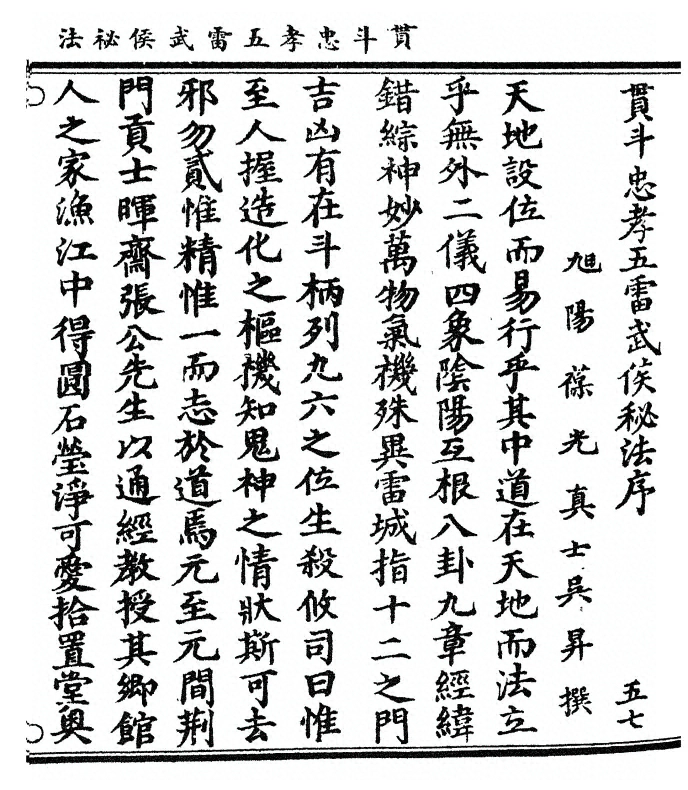 貫斗忠孝五雷武侯祕法
貫斗忠孝五雷武侯秘法序
五七
旭陽葆光真士吳昇撰
天地設位而易行乎其中道在天地而法立
乎無外二儀四象陰陽互根八卦九章經緯
錯綜神妙萬物氣機殊異雷城指十二之門
吉凶有在斗柄列九六之位生殺攸司曰惟
至人握造化之樞機知鬼神之情狀斯可去
邪勿貳惟精惟一而志於道焉元至元間荆
門貢士暉齋張公先生以通經教授其鄉館
人之家漁江中得圓石瑩淨可愛拾置堂奧